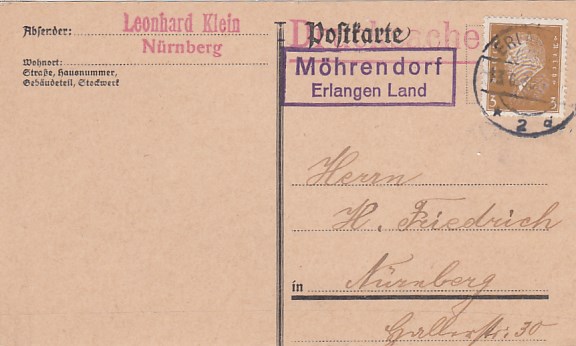 Absender:
Leonhard Klein
Nürnberg
Wohnort:
Straße, Hausnummer,
Gebäudeteil, Stockwerk
Postkarte
Drucksache
Möhrendorf
Erlangen Land
3 3
* 2 d
Herrn
H. Friedrich
in Nürnberg
Hallerstr. 30